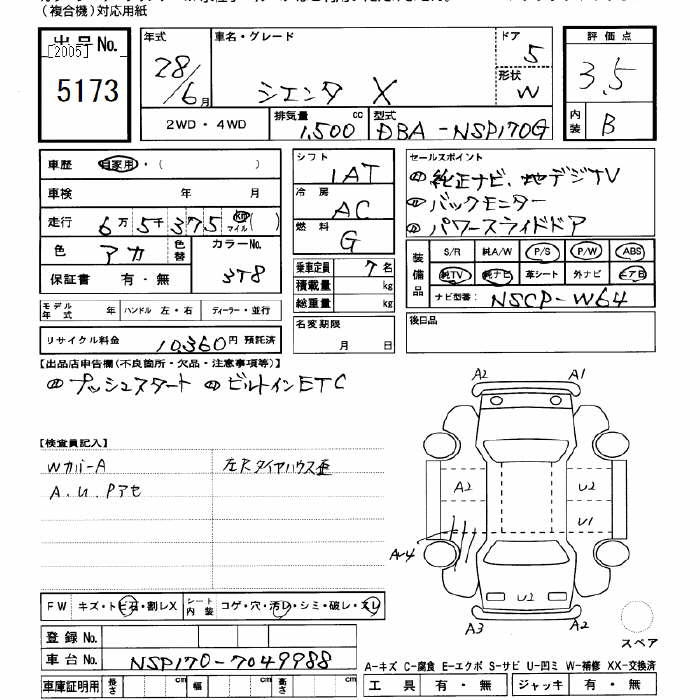 (複合機)対応用紙
出品No.
[2005]
5173
年式
28/6月
車名・グレード
シエンタ X
ドア
5
形状
W
評価点
3.5
内装
B
2WD・4WD
排気量
1,500cc
型式
DBA-NSP170G
車歴
自家用・( )
車検 年 月
走行 6万5千375 km マイル( )
色 アカ
色替
カラーNo.
3T8
保証書 有・無
シフト
1AT
冷房
AC
燃料
G
乗車定員 7名
積載量 kg
総重量 kg
セールスポイント
純正ナビ、地デジTV
バックモニター
パワースライドドア
装備品
S/R 純A/W P/S P/W ABS
純TV 純ナビ 革シート 外ナビ エアB
ナビ型番: NSCP-W64
モデル年式 年 ハンドル 左・右 ディーラー・並行
リサイクル料金 10,360円 預託済
名変期限
月 日
後日品
【出品店申告欄(不良箇所・欠品・注意事項等)】
プッシュスタート ビルトインETC
【検査員記入】
Wカバ-A
A.U.Pアセ
FW キズ・トビ石・割レX
シート内装 コゲ・穴・汚レ・シミ・破レ・スレ
登録No.
車台No. NSP170-7049988
車庫証明用 長さ cm 幅 cm 高さ cm
A2 A1
A2 U2
U1
A-4
U2
A3 A2
スペア
A-キズ C-腐食 E-エクボ S-サビ U-凹ミ W-補修 XX-交換済
工具 有・無 ジャッキ 有・無